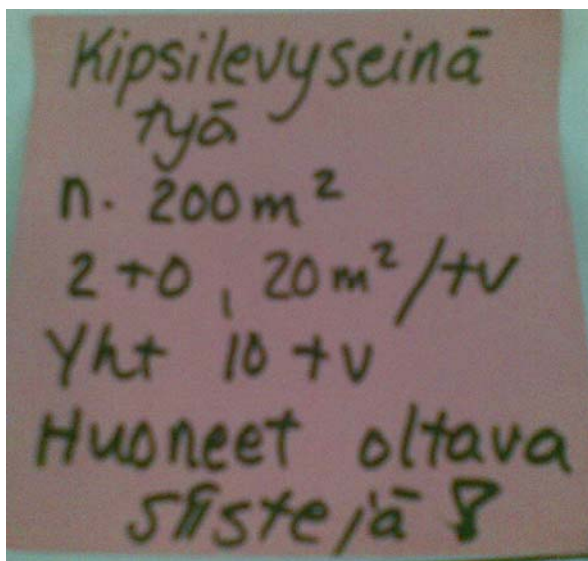 Kipsilevyseinä
tyä
n. 200 m²
2 to, 20 m²/tv
Yht 10 tv
Huoneet oltava
siistejä !